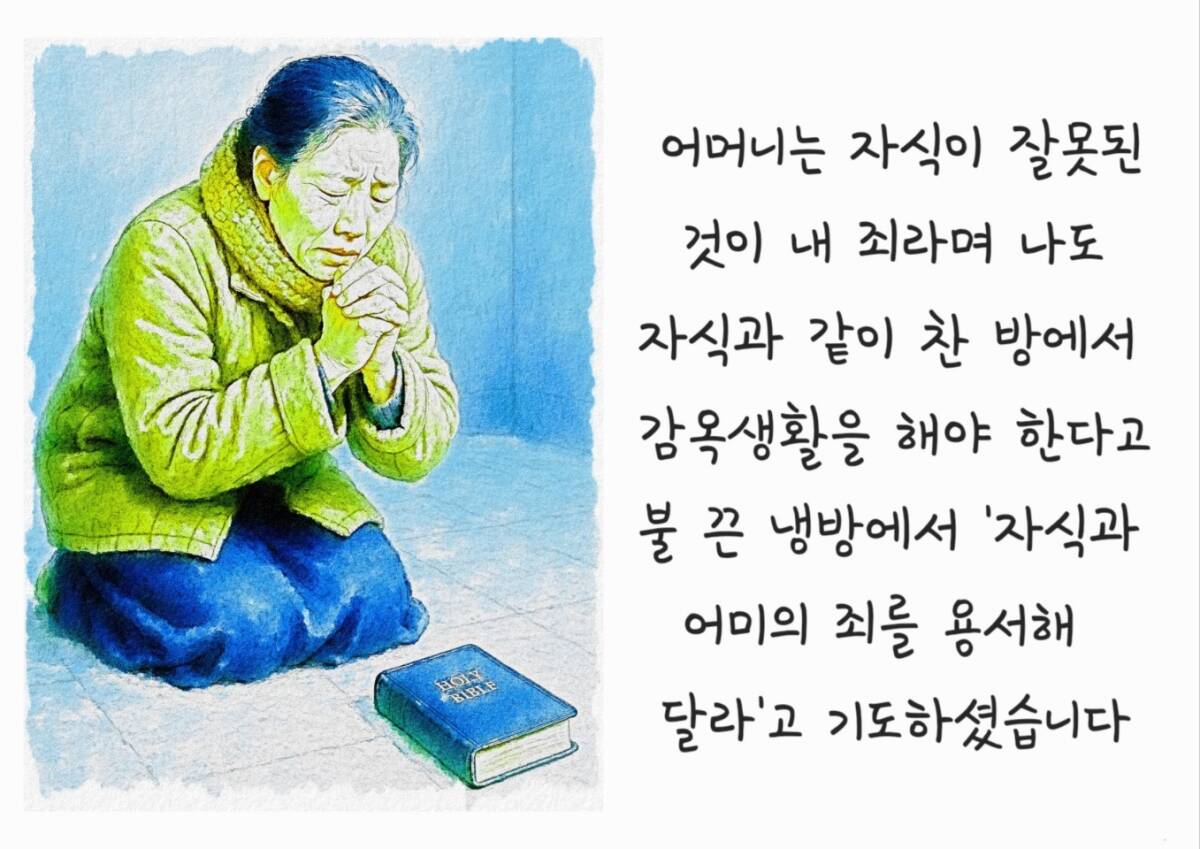 어머니는 자식이 잘못된
것이 내 죄라며 나도
자식과 같이 찬 방에서
감옥생활을 해야 한다고
불 끈 냉방에서 '자식과
어미의 죄를 용서해
달라'고 기도하셨습니다
HOLY
BIBLE